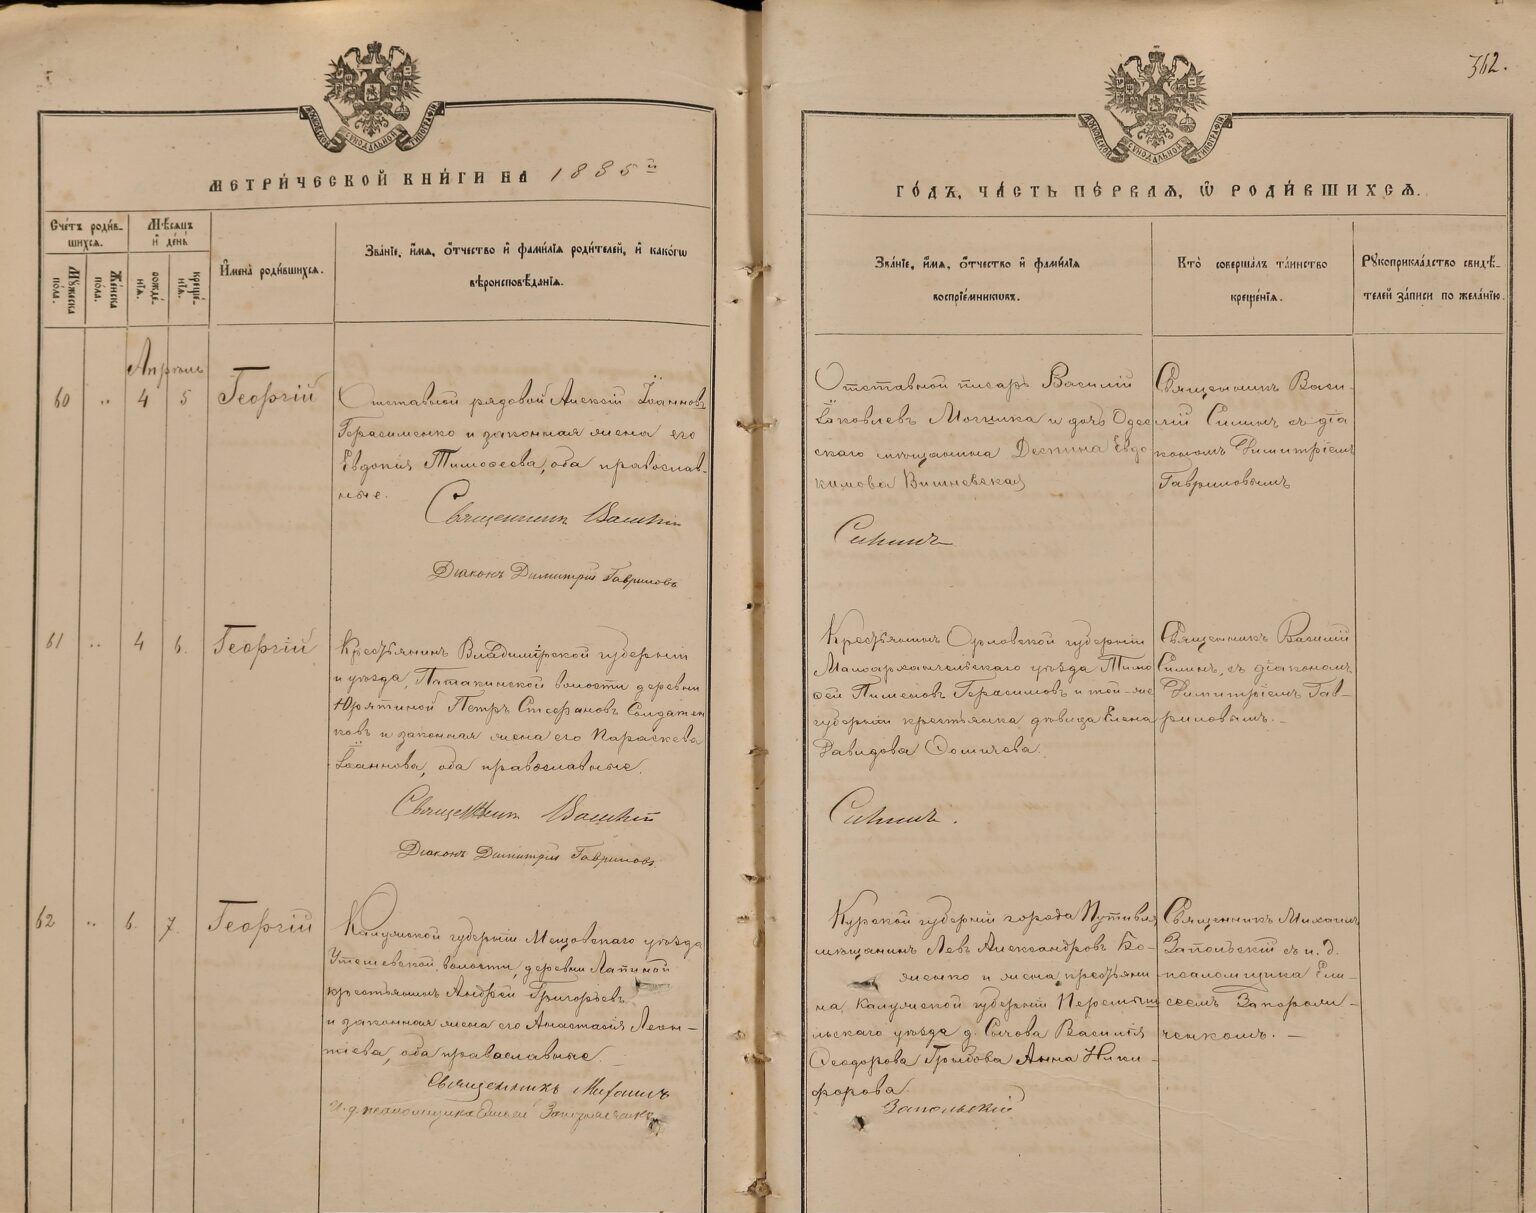 362.
МОСКОВСКОЙ СѴНОДАЛЬНОЙ ТИПОГРАФІИ
МОСКОВСКОЙ СѴНОДАЛЬНОЙ ТИПОГРАФІИ
МЕТРИ́ЧЕСКОЙ КНИ́ГИ НА 1885й
ГО́ДЪ, ЧА́СТЬ ПЕ́РВАЯ, Ѡ РОДИ́ВШИХСЯ.
Сче́тъ роди́в-
шихся.
Мѣ́сяцъ
и҆ де́нь
Мꙋжеска по́ла.
Же́нска по́ла.
рожде́-
нїя.
креще́-
нїя.
И҆мена̀ роди́вшихся.
Зва́нїе, и҆́мя, ѻ҆́тчество и҆ фами́лїя роди́телей, и҆ како́гѡ
вѣроисповѣ́данїя.
Зва́нїе, и҆́мя, ѻ҆́тчество и҆ фами́лїя
воспрїе́мникѡвъ.
Кто̀ соверша́лъ та́инство
креще́нїя.
Рꙋкоприкла́дство свидѣ́-
телей за́писи по жела́нїю.
Апрѣль
60 " 4 5 Георгій
Отставной рядовой Алексій Іоанновъ
Герасименко и законная жена его
Евдокія Тимоѳеева, оба православ-
ные.
Священникъ Василій
Діаконъ Димитрій Гавриловъ
Отставной писарь Василій
Іаковлевъ Могилка и дочь Одес
скаго мѣщанина Деспина Евдо
кимова Вишневская
Силинъ
Священникъ Васи-
лій Силинъ съ діа
кономъ Димитріемъ
Гавриловымъ
61 " 4 6. Георгій
Крестьянинъ Владимірской губерніи
и уѣзда, Патакинской волости деревни
Юрятиной Петръ Стефановъ Солдатен
ковъ и законная жена его Параскева
Іоаннова, оба православные.
Священникъ Василій
Діаконъ Димитрій Гавриловъ
Крестьянинъ Орловской губерніи
Малоархангельскаго уѣзда Тимо
ѳей Пименовъ Герасимовъ и той-же
губерніи крестьянка дѣвица Елена
Давидова Ѳомичева.
Силинъ.
Священникъ Василій
Силинъ, съ діакономъ
Димитріемъ Гав-
риловымъ. -
62 " 6. 7. Георгій
Калужской губерніи Мещовскаго уѣзда
Утешевской волости, деревни Лапиной
крестьянинъ Андрей Григорьевъ
и законная жена его Анастасія Леон-
тіева, оба православные.
Священникъ Михаилъ
И. д. псаломщика Елисей
Курской губерніи города Путивля
мѣщанинъ Левъ Александровъ Бо-
женко и жена крестьяни
на Калужской губерніи Перемыш
льскаго уѣзда д. Сычова Василія
Ѳеодорова Грибова Анна Ники-
форова.
Запольскій
Священникъ Михаилъ
Запольскій съ и. д.
псаломщика Ели-
сеемъ Запороли-
ченкомъ. -